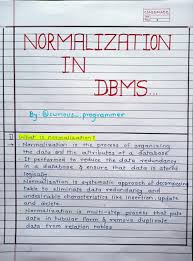 CLASSMATE
NORMALIZATION
IN
DBMS...
By: @curious_.programmer
What is Normalization?
→ Normalization is the process of organizing
the data and the attributes of a database.
→ It performed to reduce the data redundancy
in a database & ensure that data is stored
logically.
→ Normalization is systematic approach of decomposing
table to eliminate data redundancy and
undesirable characteristics like insertion, update
and delete.
→ Normalization is multi-step process that puts
data in tabular form & remove duplicate
data from relation tables